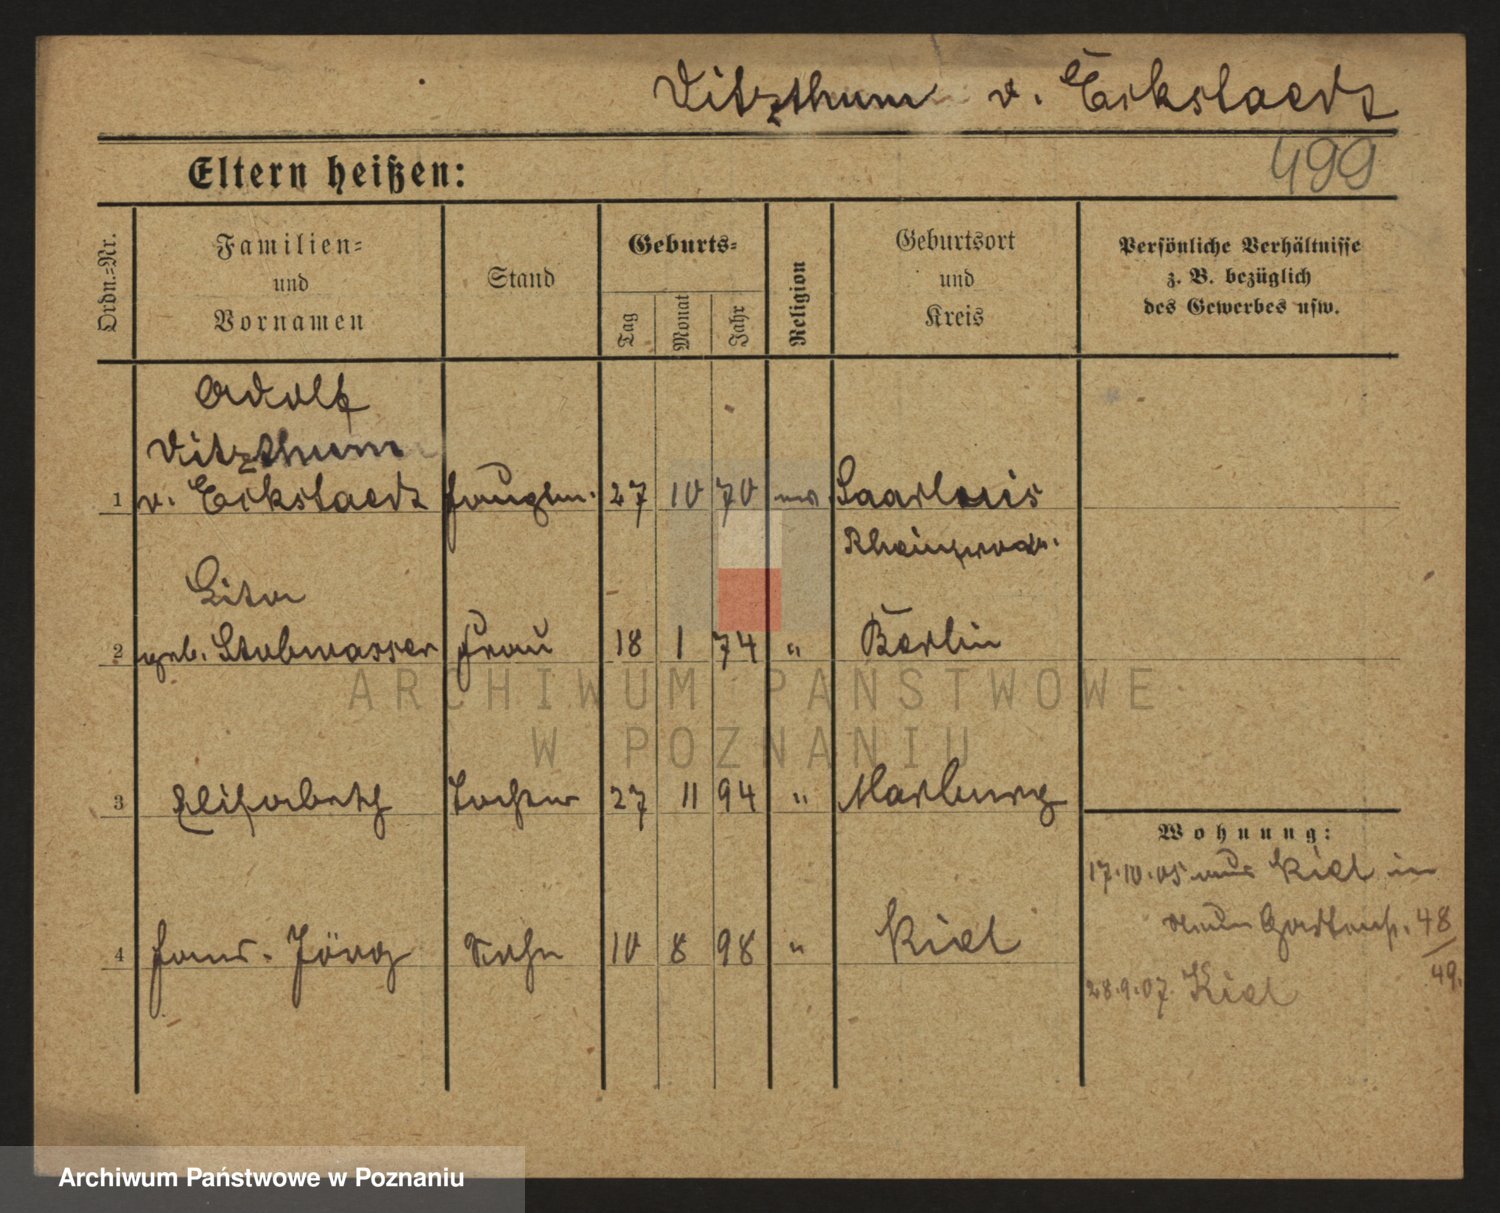 Vitzthum v. Eckstaedt
499
Eltern heißen:
Ordn.-Nr.
Familien-
und
Vornamen
Stand
Geburts-
Tag
Monat
Jahr
Religion
Geburtsort
und
Kreis
Persönliche Verhältnisse
z. B. bezüglich
des Gewerbes usw.
Adolf
Vitzthum
1 v. Eckstaedt Hauptm. 27 10 70 ev Saarlouis
Rheinprov.
Lita
2 geb. Stobwasser Frau 18 1 74 " Berlin
3 Elisabeth Tochter 27 11 94 " Marburg
4 Hans-Jörg Sohn 10 8 98 " Kiel
Wohnung:
17.10.05 aus Kiel in
Neue Gartenstr. 48/49.
28.9.07 Kiel
ARCHIWUM PAŃSTWOWE
W POZNANIU
Archiwum Państwowe w Poznaniu